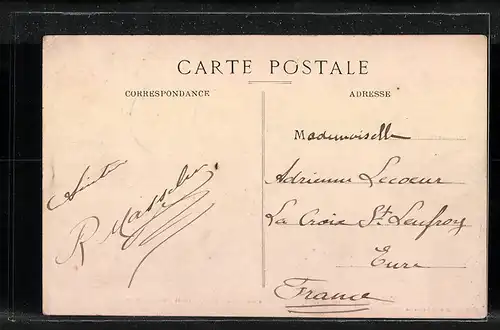 CARTE POSTALE
CORRESPONDANCE
ADRESSE
Mademoiselle
Adrienne Lecoeur
La Croix St. Leufroy
Eure
France
R